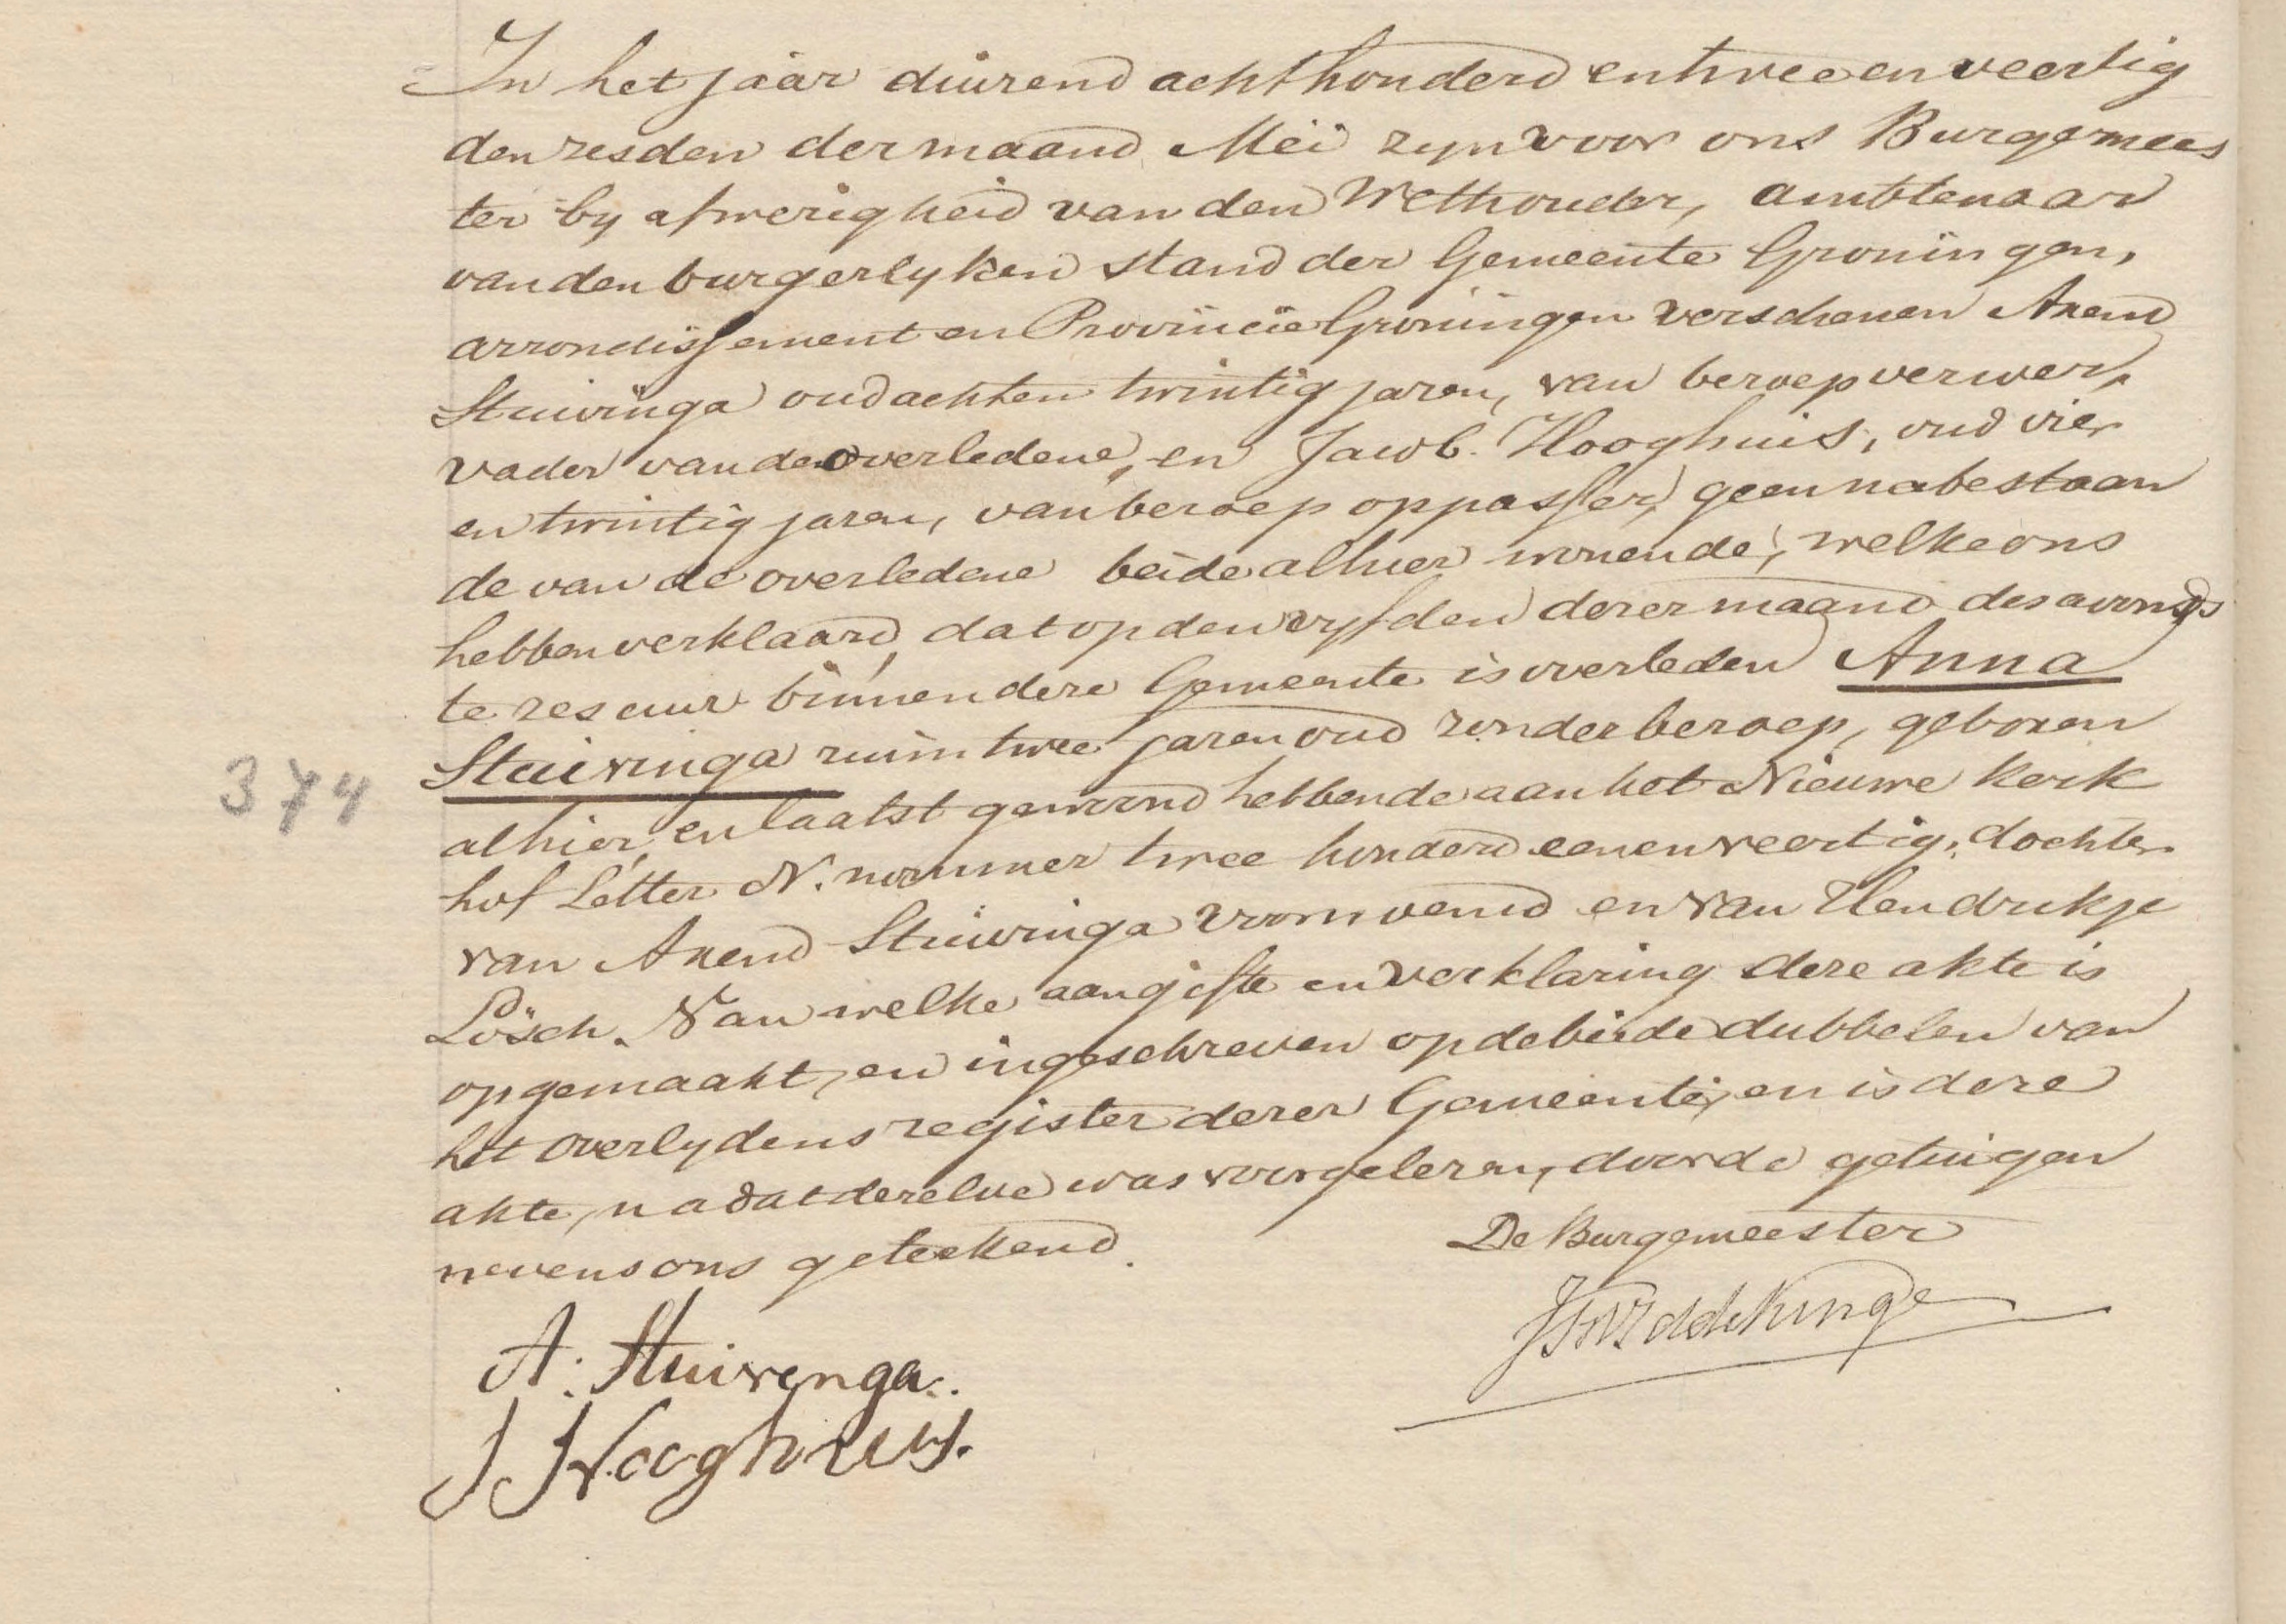 In het jaar duizend achthonderd en twee en veertig
den zesden der maand Mei zyn voor ons Burgemees
ter by afwezigheid van den Wethouder, ambtenaar
van den burgerlyken stand der Gemeente Groningen,
arrondissement en Provincie Groningen verschenen Arend
Stuivinga oud acht en twintig jaren, van beroep verwer,
vader van de overledene, en Jacob Hooghuis, oud vier
en twintig jaren, van beroep oppasser, geen nabestaan
de van de overledene beide alhier wonende, welke ons
hebben verklaard, dat op den vyfden dezer maand des avonds
te zes uur binnen deze Gemeente is overleden Anna
Stuivinga ruim twee jaren oud zonder beroep, geboren
374
alhier, en laatst gewoond hebbende aan het Nieuwe kerk
hof Letter N. nommer twee honderd een en veertig, dochter
van Arend Stuivinga voornoemd en van Hendrikje
Lösch. Van welke aangifte en verklaring deze akte is
opgemaakt, en ingeschreven op de beide dubbelen van
het overlydens register dezer Gemeente, en is deze
akte, na dat dezelve was voorgelezen, door de getuigen
nevens ons geteekend.
De Burgemeester
A. Stuivenga.
J Hooghuis.